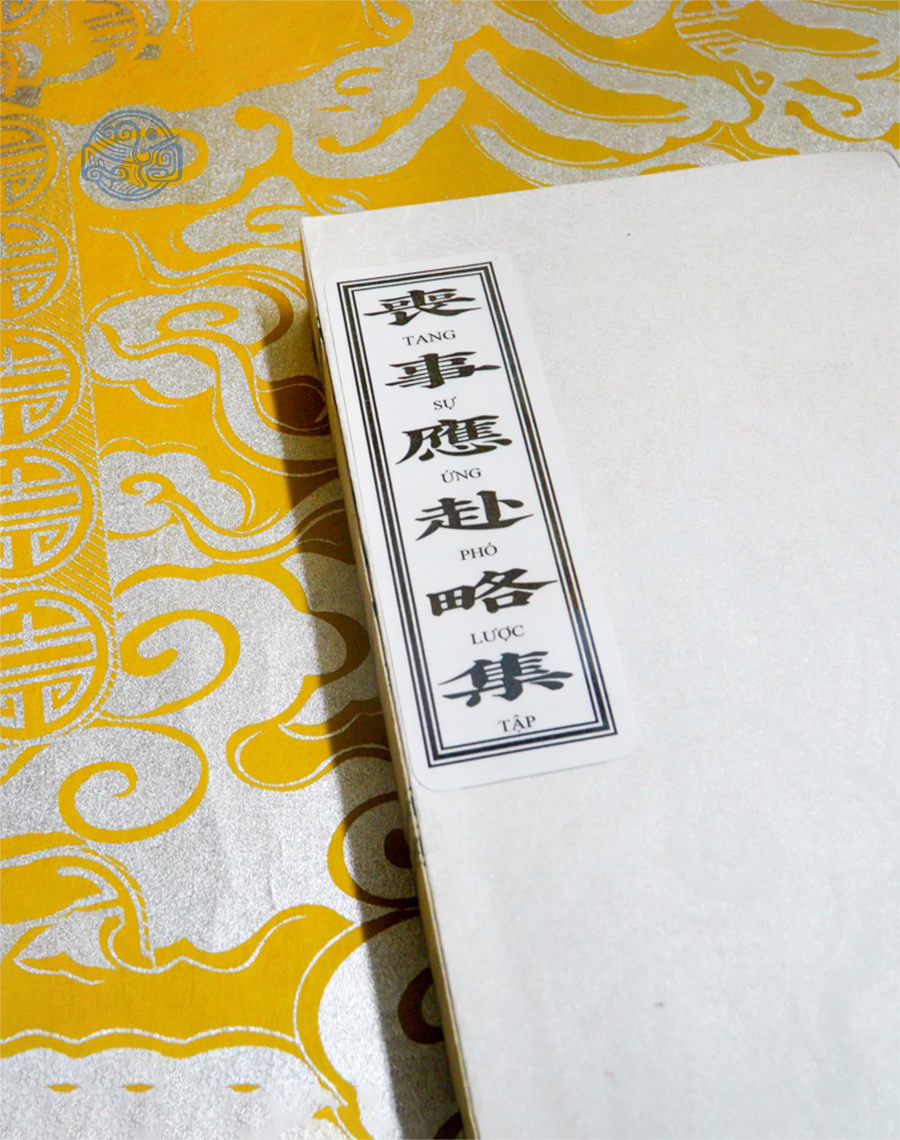 喪
TANG
事
SỰ
應
ỨNG
赴
PHÓ
略
LƯỢC
集
TẬP